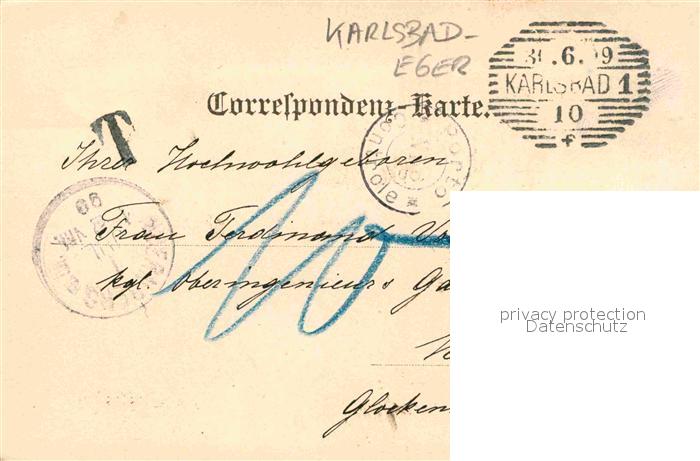 KARLSBAD-
EGER
30.6.99
KARLSBAD 1
10
Correspondenz-Karte.
T
Ihrer Hochwohlgeboren
Frau Ferdinand
kgl. Oberingenieurs Ga
Glocken
10
privacy protection
Datenschutz